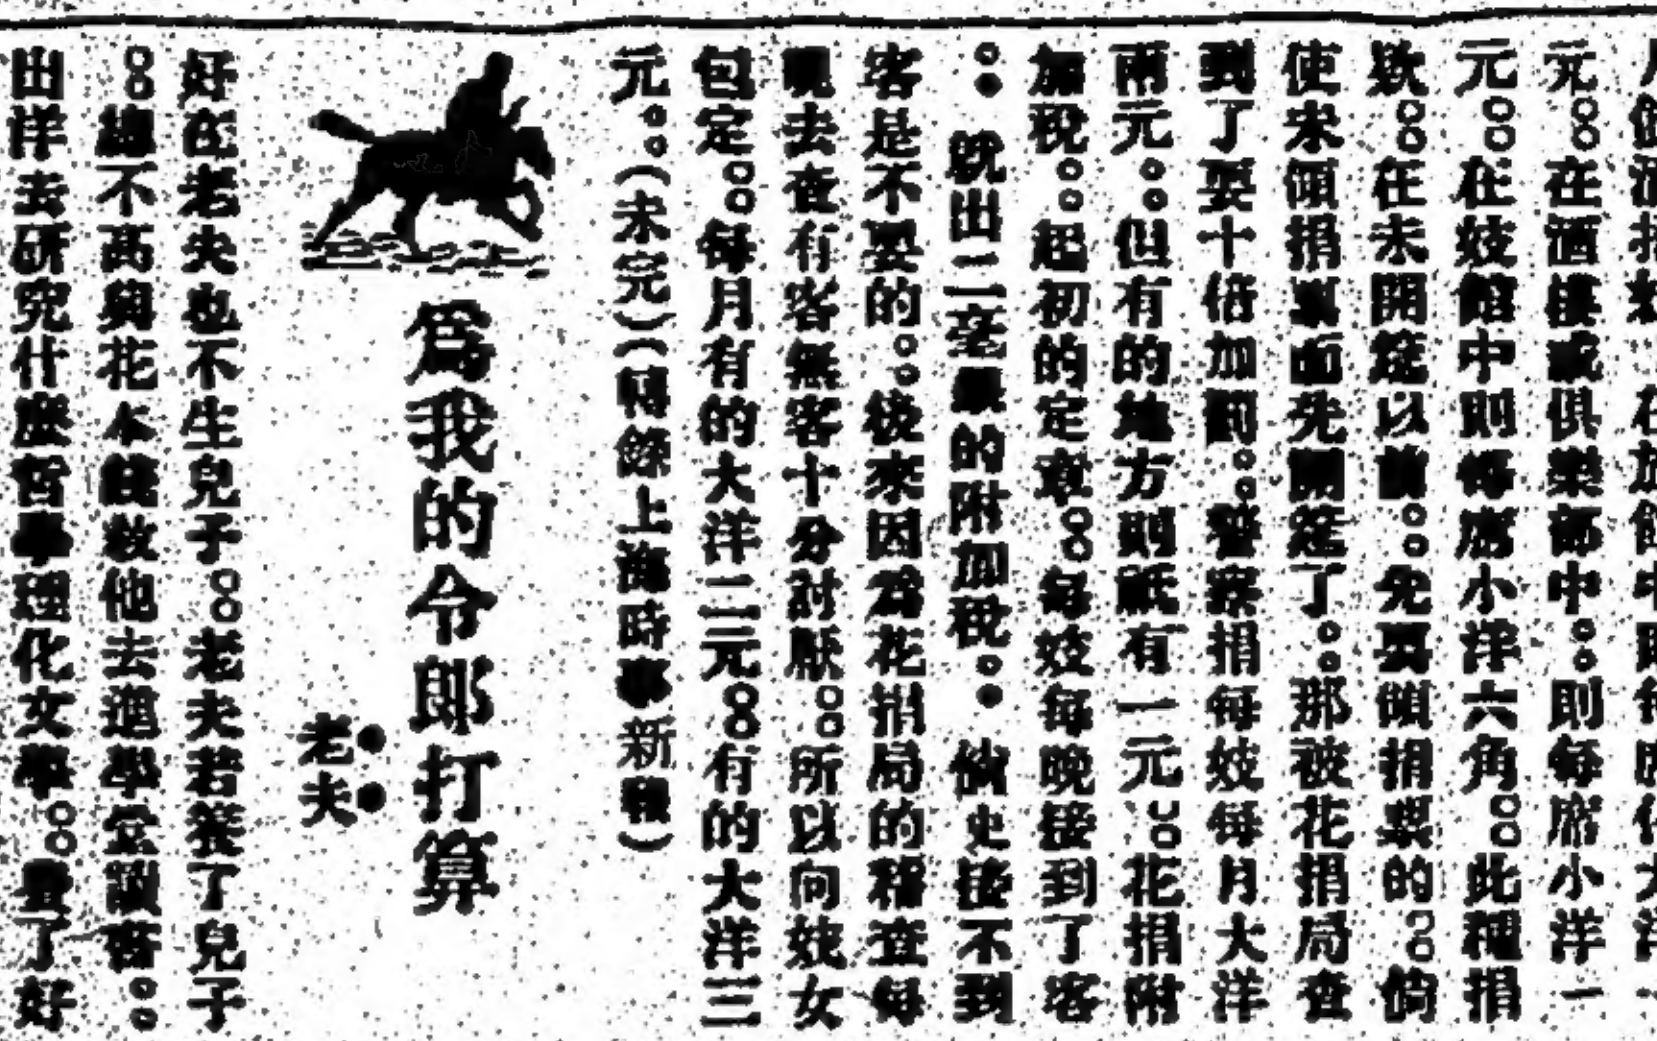 元。。在酒樓或俱樂部中。。則每席小洋一
元。。在妓館中則每席小洋六角。。此種捐
欵。。在未開筵以前。。先要領捐票的。。倘
使未領捐票而先開筵了。。那被花捐局查
到了要十倍加罰。。警察捐每妓每月大洋
兩元。。但有的地方則祇有一元。。花捐附
加稅。。起初的定章。。每妓每晚接到了客
。。就出二毫的附加稅。。倘使接不到
客是不要的。。後來因爲花捐局的稽查每
晚去查有客無客十分討厭。。所以向妓女
包定。。每月有的大洋二元。。有的大洋三
元。。（未完）（轉錄上海時事新報）
爲我的令郎打算
老夫
好在老夫也不生兒子。。老夫若養了兒子
。。總不高興花本錢教他去進學堂讀書。。
出洋去研究什麼哲學理化文學。。了好